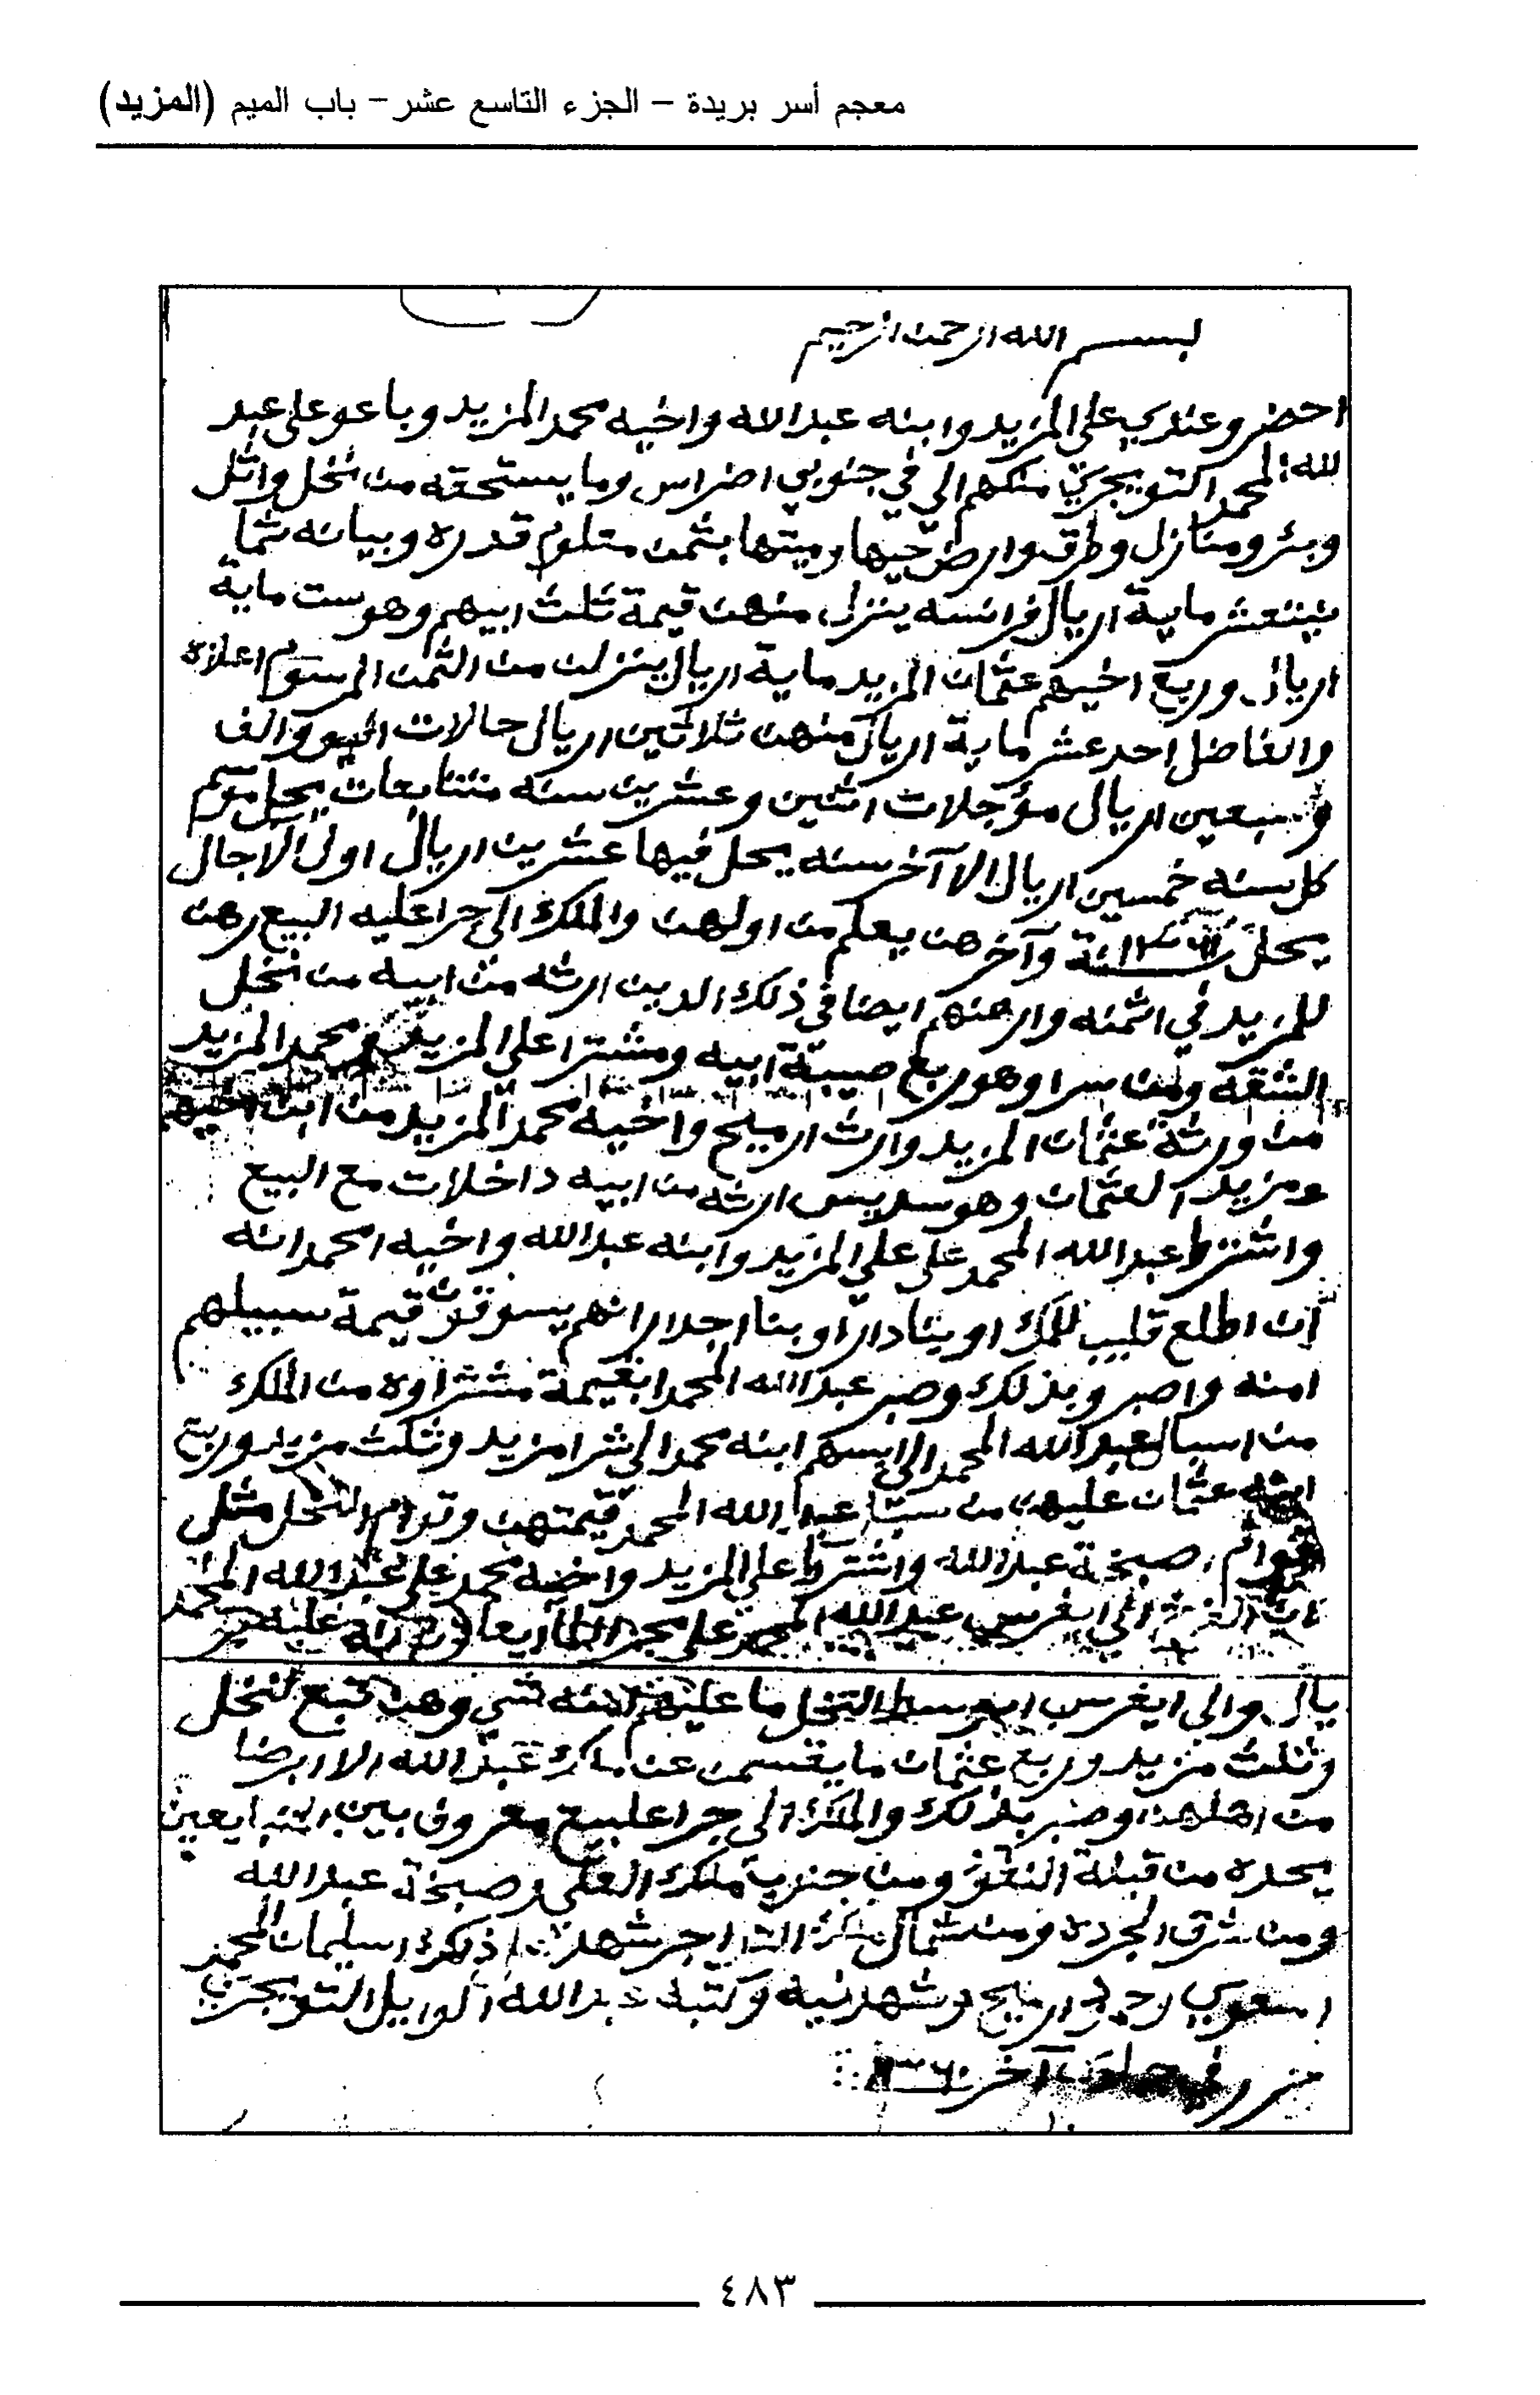 معجم أسر بريدة – الجزء التاسع عشر – باب الميم (المزيد)
بسم الله الرحمن الرحيم
احضرو عندي علي المزيد وابنه عبدالله واخيه محمد المزيد وباعو على عبد
لله المحمد التويجري ملكهم الي في جنوبي اضراس وما يستحقه من نخل واثل
وبئر ومنازل وطرق وارض حيها وميتها بثمن معلوم قدره وبيانه ثما
ماية اريال فرانسه ينزل منهن قيمة ثلث ابيهم وهو ست ماية
اريال وربع اخيهم عثمان المزيد ماية اريال ينزلن من الثمن المرسوم اعلاه
والفاضل احد عشر ماية اريال منهن ثلاثين اريال حالات والف
وسبعين اريال مؤجلات اثنين وعشرين سنه متتابعات يحل موسم
كل سنه خمسين اريال الا آخر سنه يحل فيها عشرين اريال اول الاجال
يحل سنة وآخرهن يعلم من اولهن والملك الي جرا عليه البيع رهن
للمزيد في اثمنه وارهنهم ايضا في ذلك الدين ارثه من ابيه من نخل
الشقه ومن سرا وهو ربع صيبة ابيه ومشترا علي المزيد ومحمد المزيد
من ورثة عثمان المزيد وارث ارميح واخيه محمد المزيد من ابن اخيهم
ومزيد العثمان وهو سديس ارثه من ابيه داخلات مع البيع
واشترط عبدالله المحمد على علي المزيد وابنه عبدالله واخيه امحمد انه
ان اطلع قليب للملك او بنا دار او بنا اجدار انهم يسوقون قيمة سبيلهم
امنه واصبرو بذلك وصبر عبدالله المحمد ابقيمة مشتراوه من الملك
من اسبال عبدالله المحمد الي ابسهم ابنه محمد الي شرا مزيد وثلث مزيد وربع
ابنه عثمان عليهن من عبدالله المحمد قيمتهن وقوام النخل مثل
قوام صبخة عبدالله واشترط علي المزيد واخيه محمد على عبدالله المحمد
الي ايغرس عبدالله المحمد على
يال والي ايغرس ابوسط النخل ما عليهم منه شي وهن تبع النخل
وثلث مزيد وربع عثمان ما يقسمن عن ملك عبدالله الا ابرضا
من اهلهن وصبر بذلك والملك الي جرا عليه البيع معروف بين المتبايعين
يحده من قبلة النفود ومن جنوب ملك العلي وصبخة عبدالله
ومن شرق الجرده ومن شمال شهد اذلك اسليمان المحمد
اسعوي ارميح وشهد به وكتبه عبدالله التويجري
حرر في جماد آخر
٤٨٣